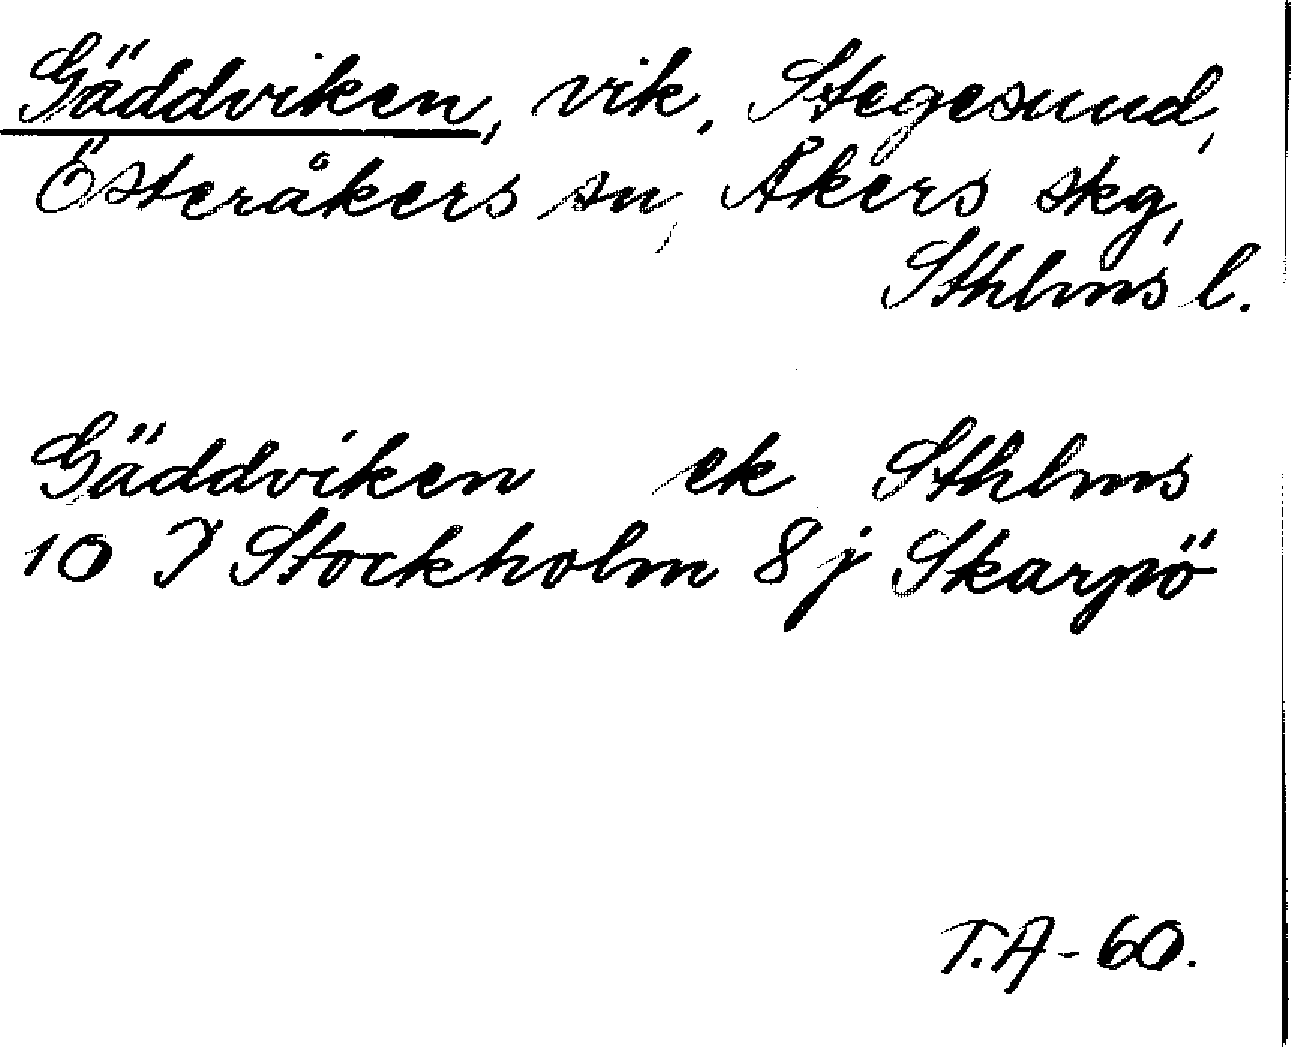 Gäddviken, vik, Stegesund,
Österåkers sn, Åkers skg,
Sthlms l.
Gäddviken ek Sthlms
10 I Stockholm 8 j Skarpö
T.A-60.